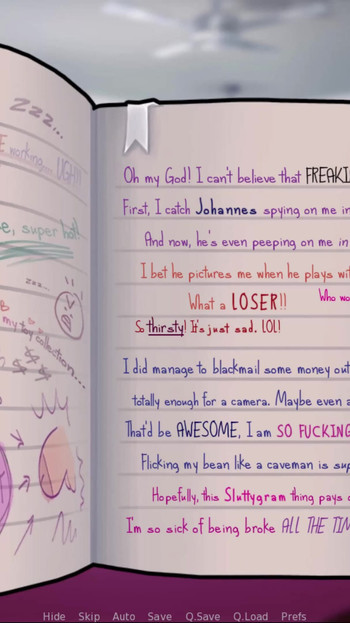 zzz...
working... UGH!!
e, super hot
zzz...
my toy collection...
Oh my God! I can't believe that FREAKI
First, I catch Johannes spying on me in
And now, he's even peeping on me in
I bet he pictures me when he plays wit
What a LOSER!!
Who wo
So thirsty! It's just sad. LOL!
I did manage to blackmail some money out
totally enough for a camera. Maybe even a
That'd be AWESOME, I am SO FUCKING
Flicking my bean like a caveman is sup
Hopefully, this Sluttygram thing pays o
I'm so sick of being broke ALL THE TIM
Hide Skip Auto Save Q.Save Q.Load Prefs